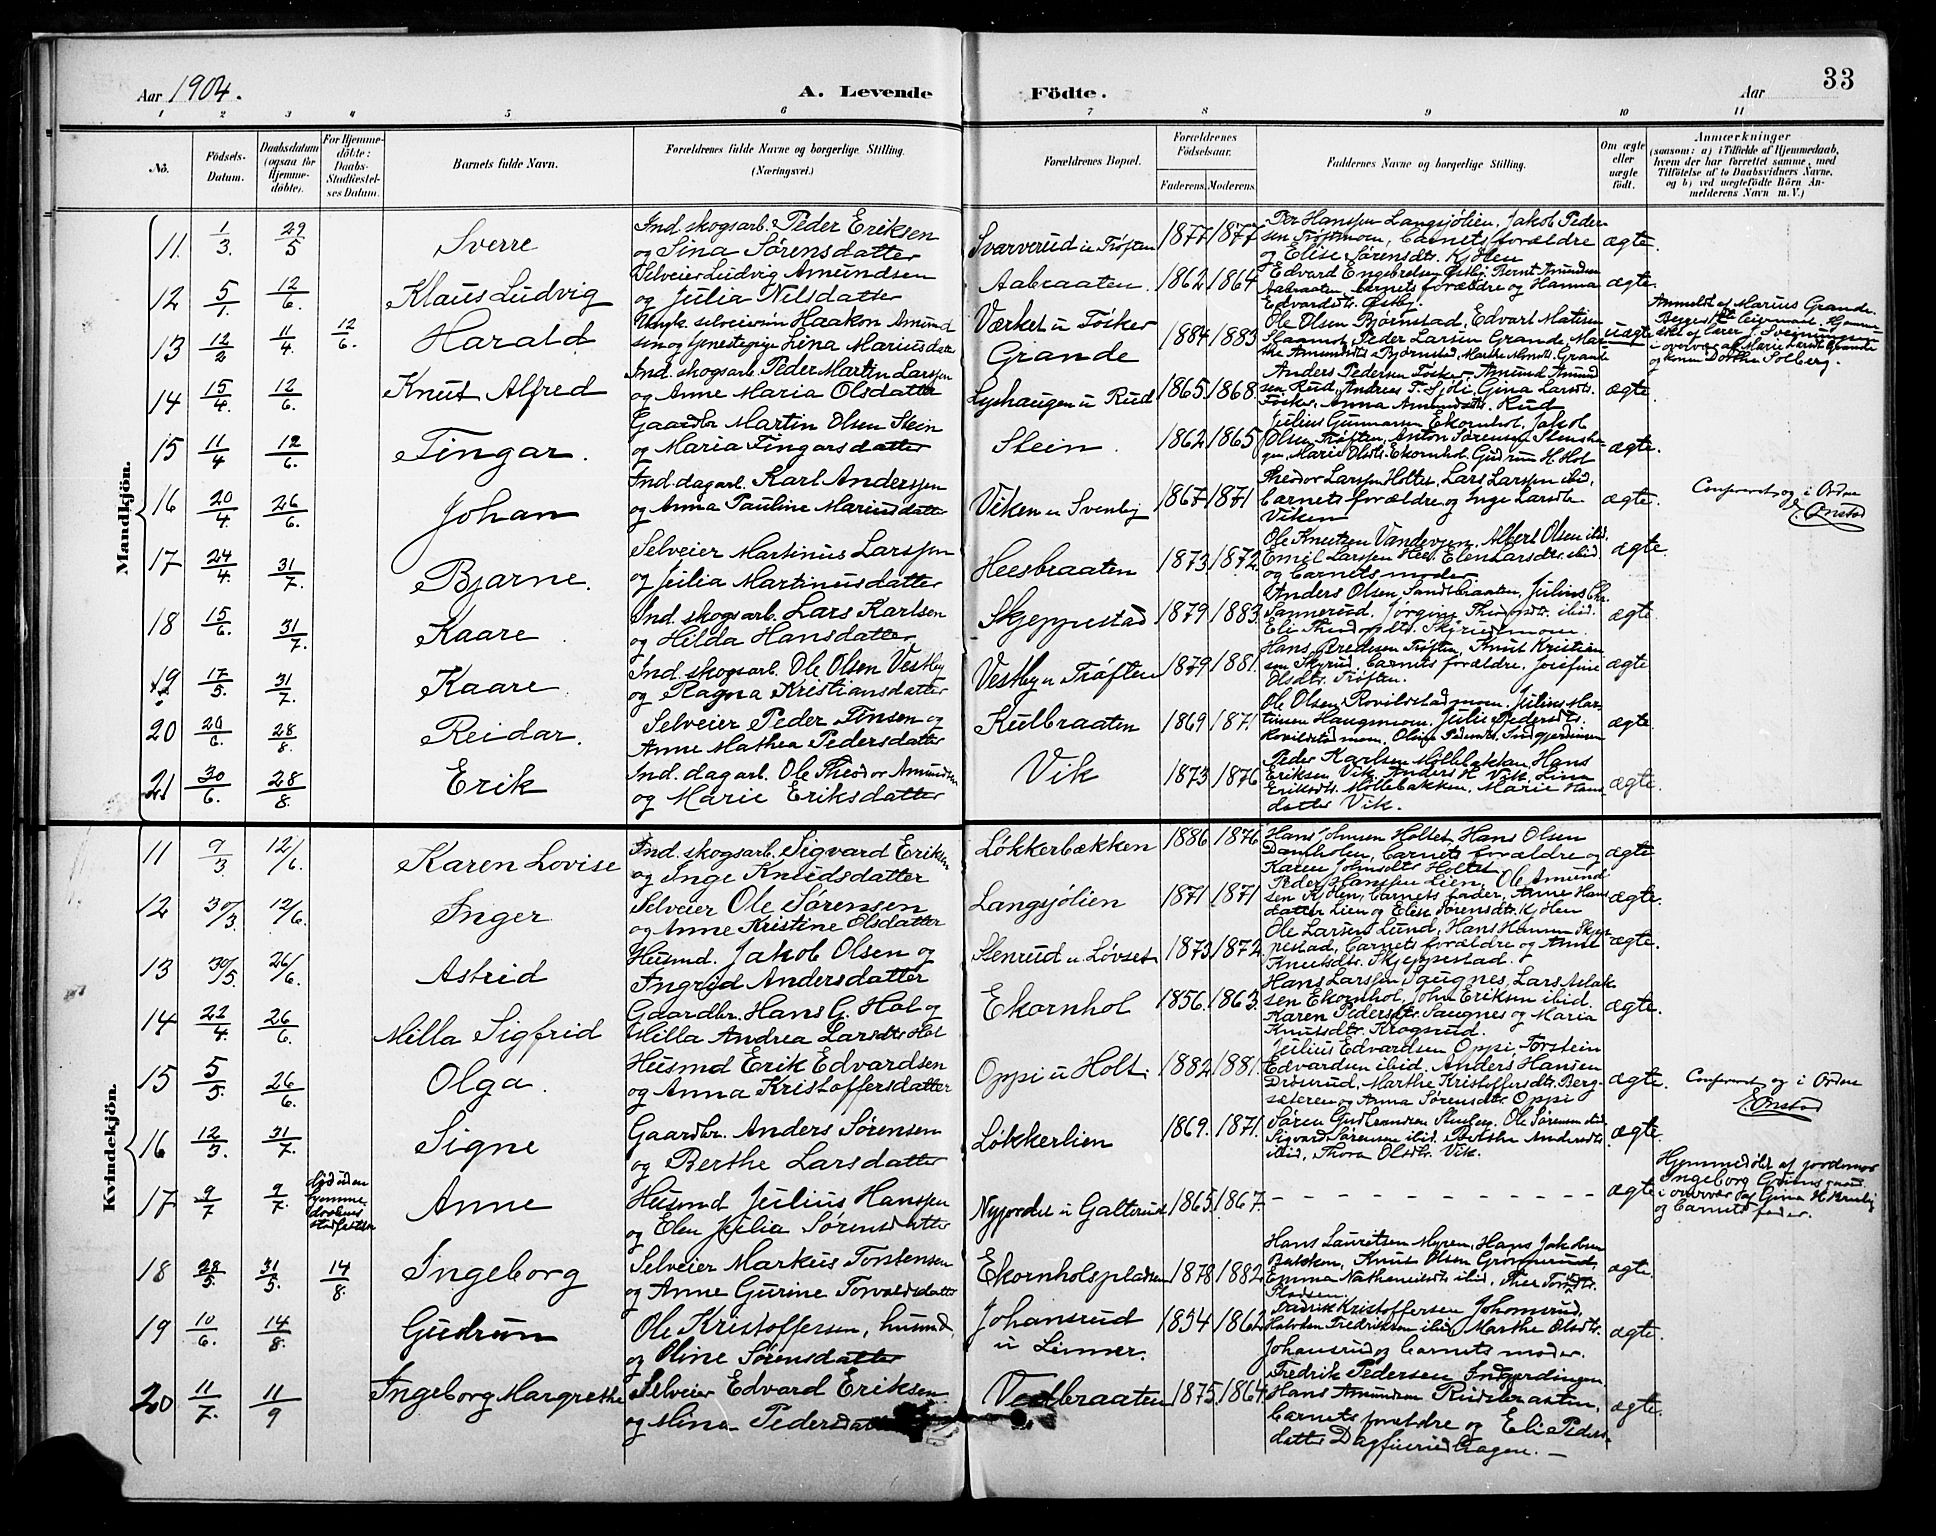 Aar 1904.
A. Levende Födte.
Aar
33
1 2 3 4 5 6 7 8 9 10 11
No.
Födsels-Datum.
Daabsdatum (ogsaa for Hjemmedöbte).
For Hjemmedöbte: Daabs-Stadfæstelses Datum.
Barnets fulde Navn.
Forældrenes fulde Navne og borgerlige Stilling. (Næringsvei.)
Forældrenes Bopæl.
Forældrenes Födselsaar.
Faderens. Moderens.
Faddernes Navne og borgerlige Stilling.
Om ægte eller uægte födt.
Anmærkninger
(saasom: a) i Tilfælde af Hjemmedaab,
hvem der har forrettet samme, med
Tilföielse af to Daabsvidners Navne,
og b) ved uægtefödte Börn An-
melderens Navn m. V.)
Mandkjön.
11. 1/3. 29/5 Sverre
Ind. skogsarb. Peder Eriksen
og Sina Sørensdatter
Svarverud u Trøften 1877 1877
Per Hanssen Langsjølien, Jakob Peder-
sen Trøftmoen, barnets forældre
og Elise Sørensdt. Kjølen
ægte.
12 5/1. 12/6. Klaus Ludvig
Selveier Ludvig Amundsen
og Julia Nilsdatter
Aabraaten. 1862 1864
Edvard Engebretsen Østby, Bernt Amundsen
Aabraaten, barnets forældre og Hanna
Edvardsdt. Østby.
ægte.
13 12/2 11/4. 12/6. Harald
Ungk. selveiersøn Haakon Amund
sen og tjenestepige Lina Mariusdatter
Værket u Tøsker
Grande
1884 1883
Ole Olsen Bjørnstad, Edvart Matisen
Peder Larsen Grande, Mar-
the Amundsdt. Bjørnstad, Marthe Grande
uægte
Anmeldt af Marius Grande
14 15/4. 12/6. Knut Alfred
Ind. skogsarb. Peder Martin Larssen
og Anne Maria Olsdatter
Lyshaugen u Rud 1865 1868.
Anders Pedersen Tosker, Amund Amund
sen Rud, Andreas P. Sjøli, Gina Larsdt.
Tosker, Anna Amundsdt. Rud
ægte.
15 11/4 12/6. Fingar.
Gaardbr Martin Olsen Stein
og Maria Fingarsdatter
Stein. 1862 1865
Julius Gunnarsen Ekornhol, Jakob
Olsen Trøften, Anton Sørensen Stensha-
gen, Marie Olsdt. Ekornhol, Gudrun H. Hol
ægte.
16 20/4 26/6. Johan
Ind. dagarb. Karl Anderssen
og Anna Pauline Mariusdatter
Viken u Svenby 1867 1871
Theodor Larssen Holtet, Lars Larsen ibid,
barnets forældre og Inge Larsdt.
Viken
ægte.
Conferert og i Orden
E. Onstad
17 24/4. 31/7. Bjarne.
Selveier Martinus Larssen
og Julia Martinusdatter
Heesbraaten 1873 1872.
Ole Knutsen Vandevjen, Albert Olsen ibid,
Emil Larssen Hee, Elen Larsdt. ibid
og barnets moder
ægte.
18 15/6. 31/7. Kaare
Ind. skogsarb. Lars Karlsen
og Hilda Hansdatter
Skjeppestad 1879 1883.
Anders Olsen Sandbraaten, Julius Chr.
Sannerud, Jørgine ibid.
ægte.
19 17/5. 31/7. Kaare
Ind. skogsarb. Ole Olsen Vestby
og Ragna Kristiansdatter
Vestby u Trøften 1879 1881.
Hans Bredesen Trøften, Knut Kristian
sen Skyrud, barnets forældre, Josefine
Olsdt. Trøften.
ægte
20 20/6. 28/8. Reidar.
Selveier Peder Jensen og
Anne Mathea Pedersdatter
Kulbraaten 1869 1871.
Ole Olsen Rovildstadmoen, Julius Mar-
tinsen Haugsmoen, Julie Pedersdt.
Rovildstadmoen, Oline Pedersdt. Indgjerdingen
ægte
21 30/6. 28/8. Erik
Ind. dagarb. Ole Theodor Amundsen
og Marie Eriksdatter
Vik 1873 1876
Peder Karlsen Møllebakken, Hans
Eriksen Vik, Anders H. Vik, Lina
Eriksdt. Møllebakken, Marie Hans
datter Vik.
ægte.
Kvindekjön.
11 9/3 12/6. Karen Lovise
Ind. skogsarb. Sigvard Eriksen
og Inge Knudsdatter
Løkkerbækken 1886 1876
Hans Johnsen Holtet, Hans Olsen
barnets forældre og
Karen Johnsdt. Holtet
ægte
12 30/3. 12/6. Inger
Selveier Ole Sørensen
og Anne Kristine Olsdatter
Langsjølien 1871 1871
Peder Hanssen Lien, Ole Amund
sen Kjølen, barnets fader, Anne Hans
datter Lien og Elise Sørensdt. Kjølen
ægte.
13 30/5. 26/6. Astrid
Husmd. Jakob Olsen og
Ingrid Andersdatter
Stenrud u. Løvset 1873 1872.
Ole Larsen Lund, Hans Hansen Skjep
pestad, barnets forældre og Anne
Knutsdt. Skjeppestad.
ægte.
14 22/4. 26/6. Milla Sigfrid
Gaardbr. Hans G. Hol og
Milla Andrea Larsdt. Hol
Ekornhol 1856. 1863.
Hans Larssen Saugnes, Lars Aslak
sen Ekornhol, John Eriksen ibid.
Karen Pedersdt. Saugnes og Maria
Knutsdt. Krogsrud.
ægte.
15 5/5. 26/6. Olga.
Husmd Erik Edvardsen
og Anna Kristoffersdatter
Oppi u Holt 1882 1881.
Julius Edvardsen Oppi, Torstein
Edvardsen ibid. Anders Hansen
Drøsrud, Marthe Kristoffersdt. Berg-
sæteren og Anna Sørensdt. Oppi
ægte.
Conferert og i Orden
E. Onstad
16 12/3. 31/7. Signe
Gaardbr. Anders Sørensen
og Berthe Larsdatter
Løkkerlien 1869. 1871.
Søren Gudbrandsen Ole Sørensen ibid
Sigvard Sørensen ibid. Berthe Andersdt.
ibid, Thora Olsdt. Vik.
ægte.
17 9/7 9/7. Død uden
hjemme-
daabens
stadfæstelse
Anne
Husmd Julius Hanssen
og Elen Julia Sørensdatter
Nyjordet u Galterud 1865. 1867.
– – – – – – – – – – –
ægte
Hjemmedøbt af jordemor
Ingeborg Grønsgaard
i overvær af Gina H. Bruby
og barnets fader.
18 28/5. 31/5. 14/8. Ingeborg
Selveier Markus Torstensen
og Anne Gurine Torvaldsdatter
Ekornholspladsen 1878 1882
Hans Lauritsen Myren, Hans Jakobsen
Bakken, Knut Olsen Grønnerud,
Emma Nathanielsdt. ibid,
Pladsen.
ægte.
19 10/6. 14/8. Gudrun
Ole Kristoffersen, husmd,
og Oline Sørensdatter
Johansrud
u Linner.
1854 1862
Fredrik Kristoffersen Johansrud,
Halvden Fredriksen ibid, Marthe Olsdt.
Johansrud og barnets moder.
ægte.
20 11/7. 11/9 Ingeborg Margrethe
Selveier Edvard Eriksen
og Mina Pedersdatter
Vedbraaten 1875. 1864.
Fredrik Pedersen Indgjerdingen,
Hans Amundsen Rudsbraaten,
barnets forældre og Eli Peders-
datter Dagfinrudhagen. –
ægte.